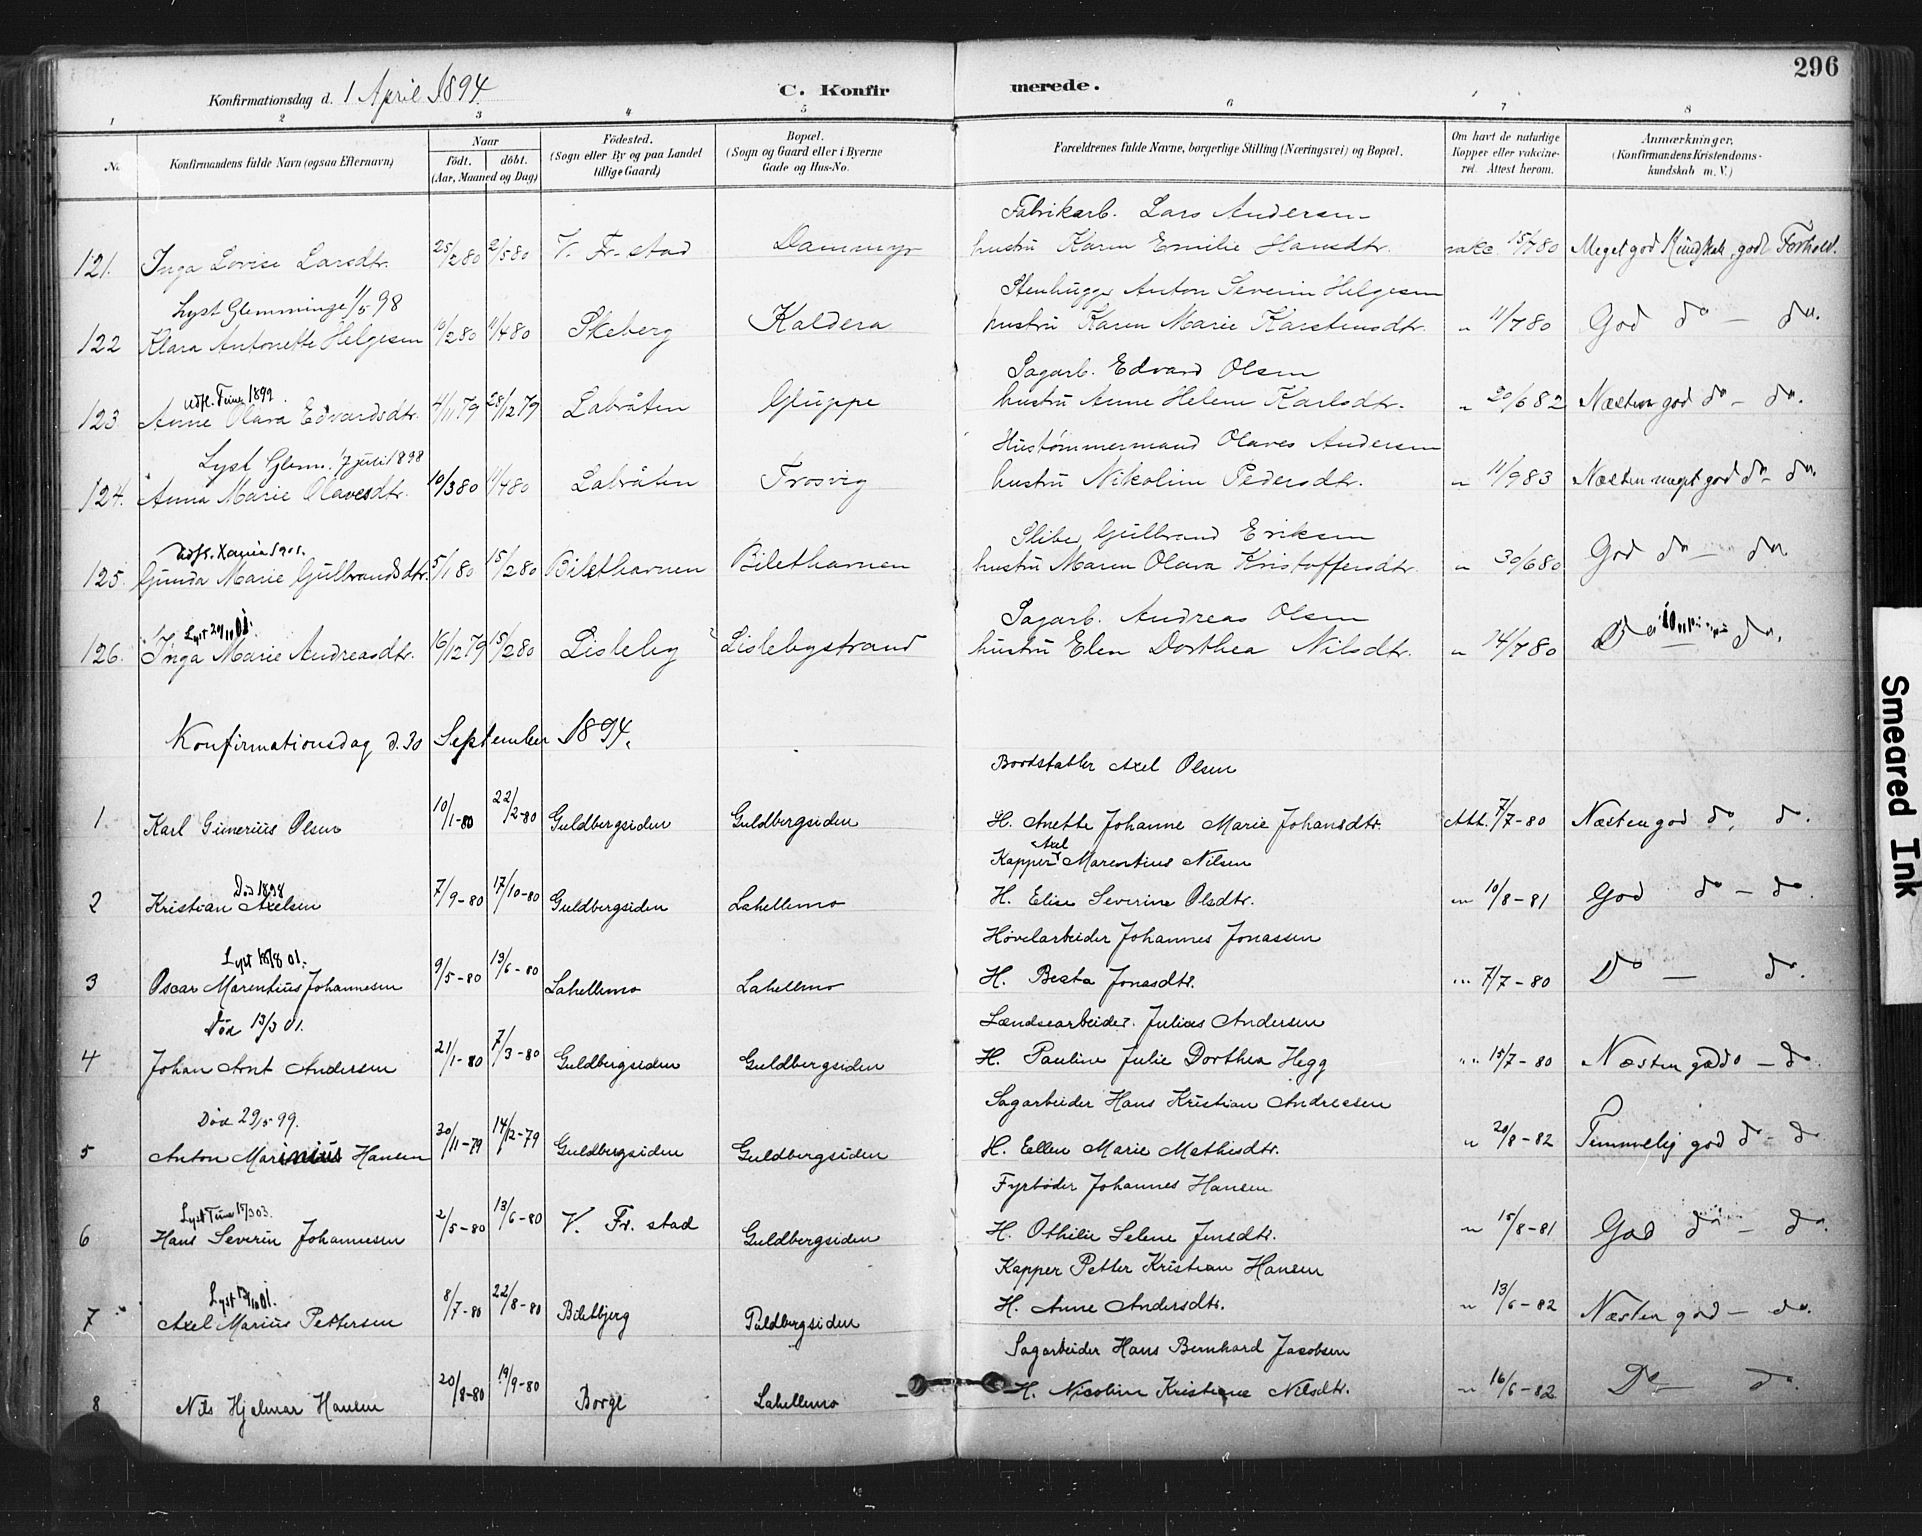 296
Konfirmationsdag d. 1 April 1894. C. Konfirmerede.
1 2 3 4 5 6 7 8
No. Konfirmandens fulde Navn (ogsaa Efternavn) Naar født. døbt. (Aar, Maaned og Dag) Fødested. (Sogn eller By og paa Landet tillige Gaard) Bopæl. (Sogn og Gaard eller i Byerne Gade og Hus-No. Forældrenes fulde Navne, borgerlige Stilling (Næringsvei) og Bopæl. Om havt de naturlige Kopper eller vakcineret. Attest herom. Anmærkninger. (Konfirmandens Kristendomskundskab m. V.)
Fabrikarb. Lars Andersen
121. Inga Lovise Larsdtr. 25/2 80 2/5 80 V. Fr. stad Dammyr hustru Karen Emilie Hansdtr. vakc. 15/7 80 Meget god Kundskab, godt Forhold.
Lyst Glemminge 11/5 98 Stenhugger Anton Severin Helgesen
122 Klara Antonette Helgesen 10/2 80 11/4 80 Skeberg Kaldera hustru Karen Marie Karstensdtr. " 11/7 80 God do — do.
Udfl. Tune 1899. Sagarb. Edvard Olsen
123 Anne Olava Edvardsdtr. 4/11 79 28/12 79 Labråten Gluppe hustru Anne Helene Karlsdtr. " 20/6 82 Næsten god do — do.
Lyst Glem. 17 juli 1898 Hustømmermand Olaves Andersen
124. Anna Marie Olavesdtr. 10/3 80 11/4 80 Labråten Trosvig hustru Nikoline Pedersdtr. " 11/9 83 Næsten meget god do — do.
Sliber Gulbrand Eriksen
125. Gunda Marie Gulbrandsdtr. 5/1 80 15/2 80 Bilethavnen Bilethavnen hustru Maren Olava Kristoffersdtr. " 30/6 80 God do — do.
Lyst 20/11 01. Sagarb. Andreas Olsen
126. Inga Marie Andreasdtr. 16/12 79 15/2 80 Lisleby Lislebystrand hustru Elen Dorthea Nilsdtr. " 14/7 80 Do — do.
Konfirmationsdag d. 30 September 1894.
Bordstabler Axel Olsen
1. Karl Gunerius Olsen 10/1-80 22/2-80 Guldbergsiden Guldbergsiden H. Anette Johanne Marie Johansdtr. Att. 7/7-80 Næsten god do, do.
Kapper Axel Marentius Nilsen
Død 1898
2 Kristian Axelsen 7/9-80 17/10-80 Guldbergsiden Lahellemo H. Elise Severine Olsdtr. " 10/8-81 God do — do.
Lyst 18/8 01. Høvelarbeider Johannes Jonassen
3 Oscar Marentius Johannesen 9/5-80 13/6-80 Lahellemo Lahellemo H. Beata Jonasdtr. " 7/7-80 Do — do.
Død 13/3 01. Lændsearbeider Julius Andersen
4 Johan Arnt Andersen 21/1-80 7/3-80 Guldbergsiden Guldbergsiden H. Pauline Julie Dorthea Hegg " 15/7-80 Næsten god do — do
Død 29/5 99. Sagarbeider Hans Kristian Andresen
5 Anton Marinius Hansen 30/11-79 14/12-79 Guldbergsiden Guldbergsiden H. Ellen Marie Mathisdtr. " 20/8-82 Temmelig god do — do
Lyst Tune 15/3 03. Fyrbøder Johannes Hansen
6 Hans Severin Johannesen 2/5-80 13/6-80 V. Fr. stad Guldbergsiden H. Othilie Selene Jensdtr. " 15/8-81 God do — do.
Kapper Petter Kristian Hansen
7 Axel Marius Pettersen 8/7-80 22/8-80 Biletbjerg Guldbergsiden H. Anne Andersdtr. " 13/6-82 Næsten god — do.
Sagarbeider Hans Bernhard Jacobsen
8 Nils Hjalmar Hansen 20/8-80 19/9-80 Borge Lahellemo H. Nicoline Kristiane Nilsdtr. " 16/6-82 Do — do.
Smeared Ink